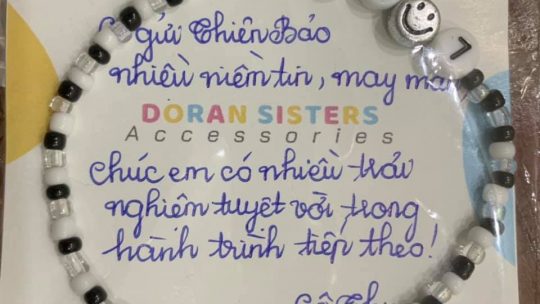 Cô gửi Thiên Bảo
nhiều niềm tin, may mắn
DORAN SISTERS
Accessories
chúc em có nhiều trải
nghiệm tuyệt vời trong
hành trình tiếp theo!